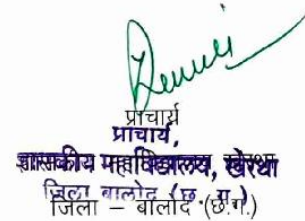 प्राचार्य
प्राचार्य,
शासकीय महाविद्यालय, खेरथा
जिला बालोद (छ. ग.)
जिला – बालोद (छ.ग.)